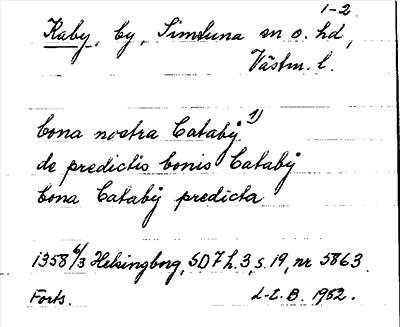 1-2.
Kaby, by, Simtuna sn o. hd,
Västm. l.
bona nostra Catabij 1)
de predictis bonis Catabij
bona Catabij predicta
1358 6/3 Helsingborg, SD 7 h. 3, s. 19, nr 5863.
Forts. L-E. B. 1962.